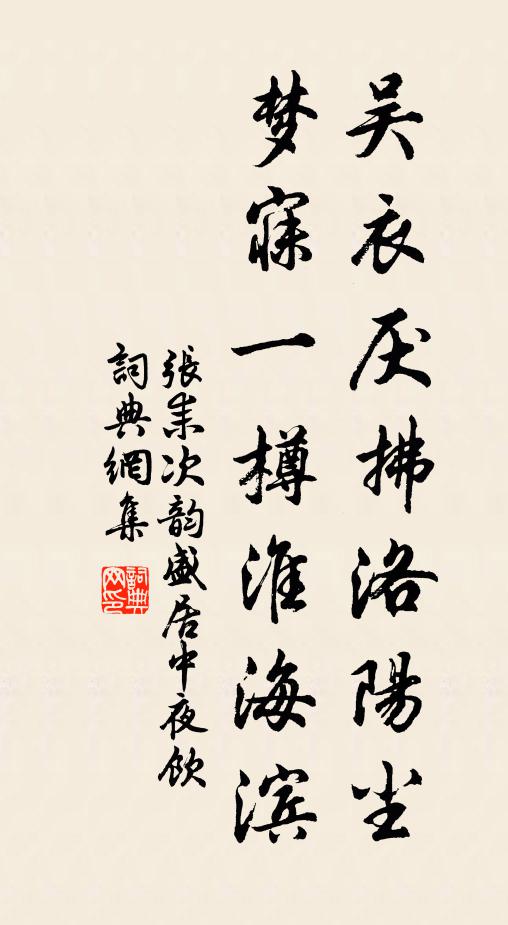 吴衣厌拂洛陽尘
梦寐一樽淮海滨
張耒次韵盛居中夜飲
詞典網集
詞典网印